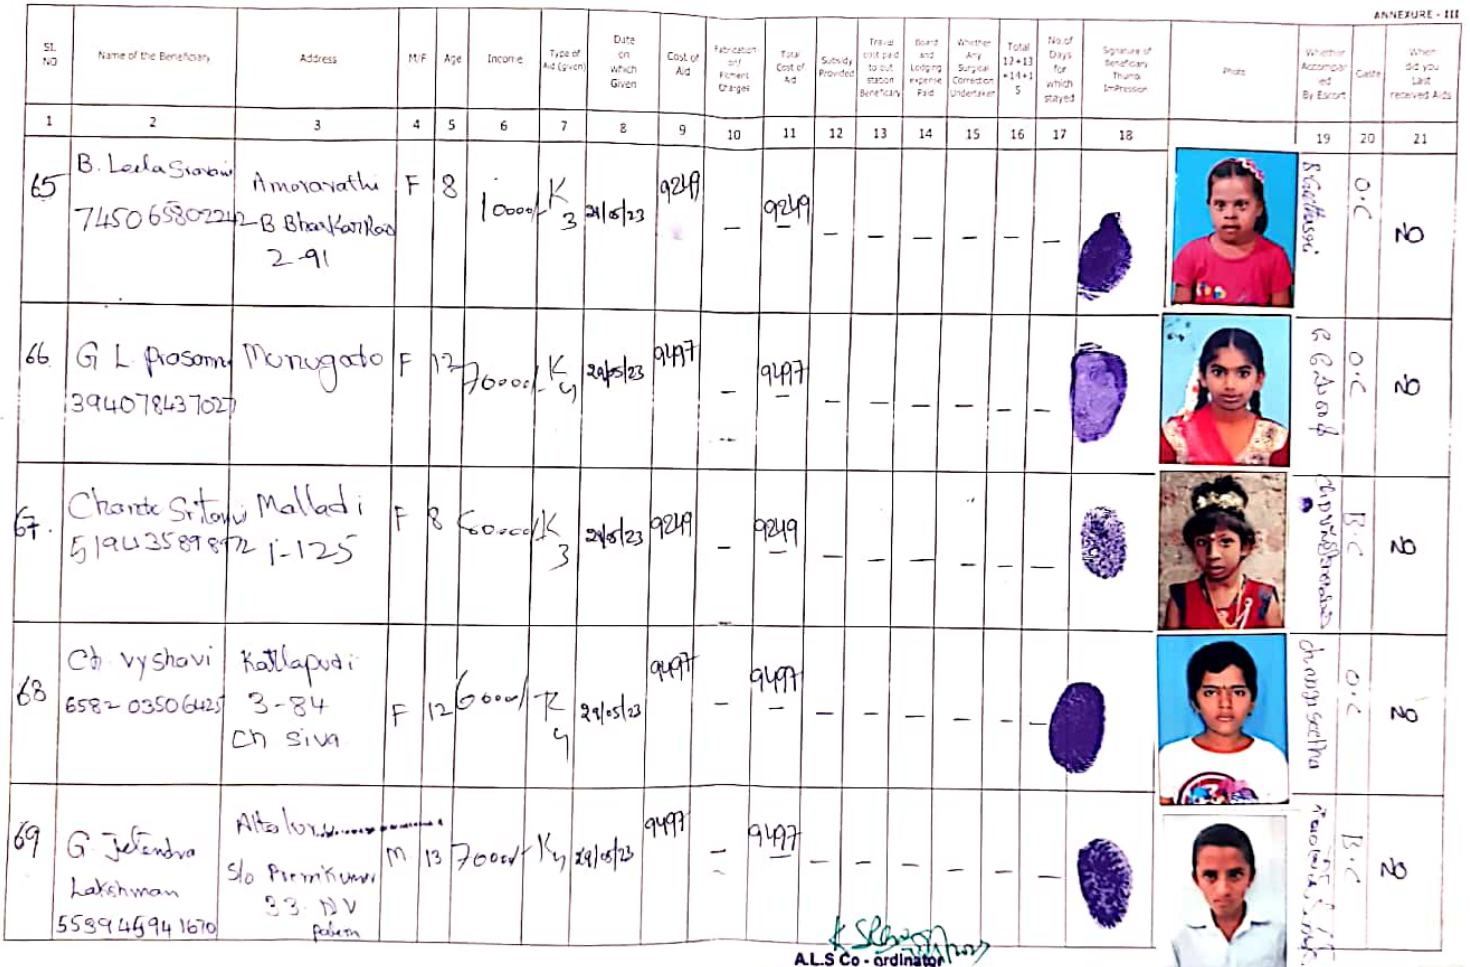 ANNEXURE - III
Sl. NO
Name of the Beneficiary
Address
M/F
Age
Income
Type of Aid (given)
Date on Which Given
Cost of Aid
Fabrication/ Fitment Charges
Total Cost of Aid
Subsidy Provided
Travel cost paid to out station Beneficiary
Board and Lodging expense Paid
Whether Any Surgical Correction Undertaken
Total 12+13+14+15
No.of Days for which stayed
Signature of Beneficiary Thumb ImPression
Photo
Whether Accompanied By Escort
Caste
When did you Last received Aids
1 2 3 4 5 6 7 8 9 10 11 12 13 14 15 16 17 18 19 20 21
65
B. Leela Sravani
745065802242
Amaravathi
B Bhaskar Rao
2-91
F 8 10000/- K 3 29/05/23 9249 – 9249 – – – – – –
O.C
NO
66
G L Prasanna
394078437027
Munugato
F 12 70000/- K 4 29/05/23 9497 – 9497 – – – – – –
O.C
NO
67.
Malladi
1-125
F 8 60000/- K 3 29/05/23 9249 – 9249 – – – – – –
B.C
NO
68
Ch. Vyshavi
6582 03506425
Katlapudi
3-84
Ch Siva
F 12 60000/- K 4 29/05/23 9497 – 9497 – – – – – –
O.C
NO
69
G. Jetendra
Lakshman
S/o Premkumar
33- NV
palem
M 13 70000/- K4 29/05/23 9497 – 9497 – – – – – –
B.C
NO
A.L.S Co - ordinator